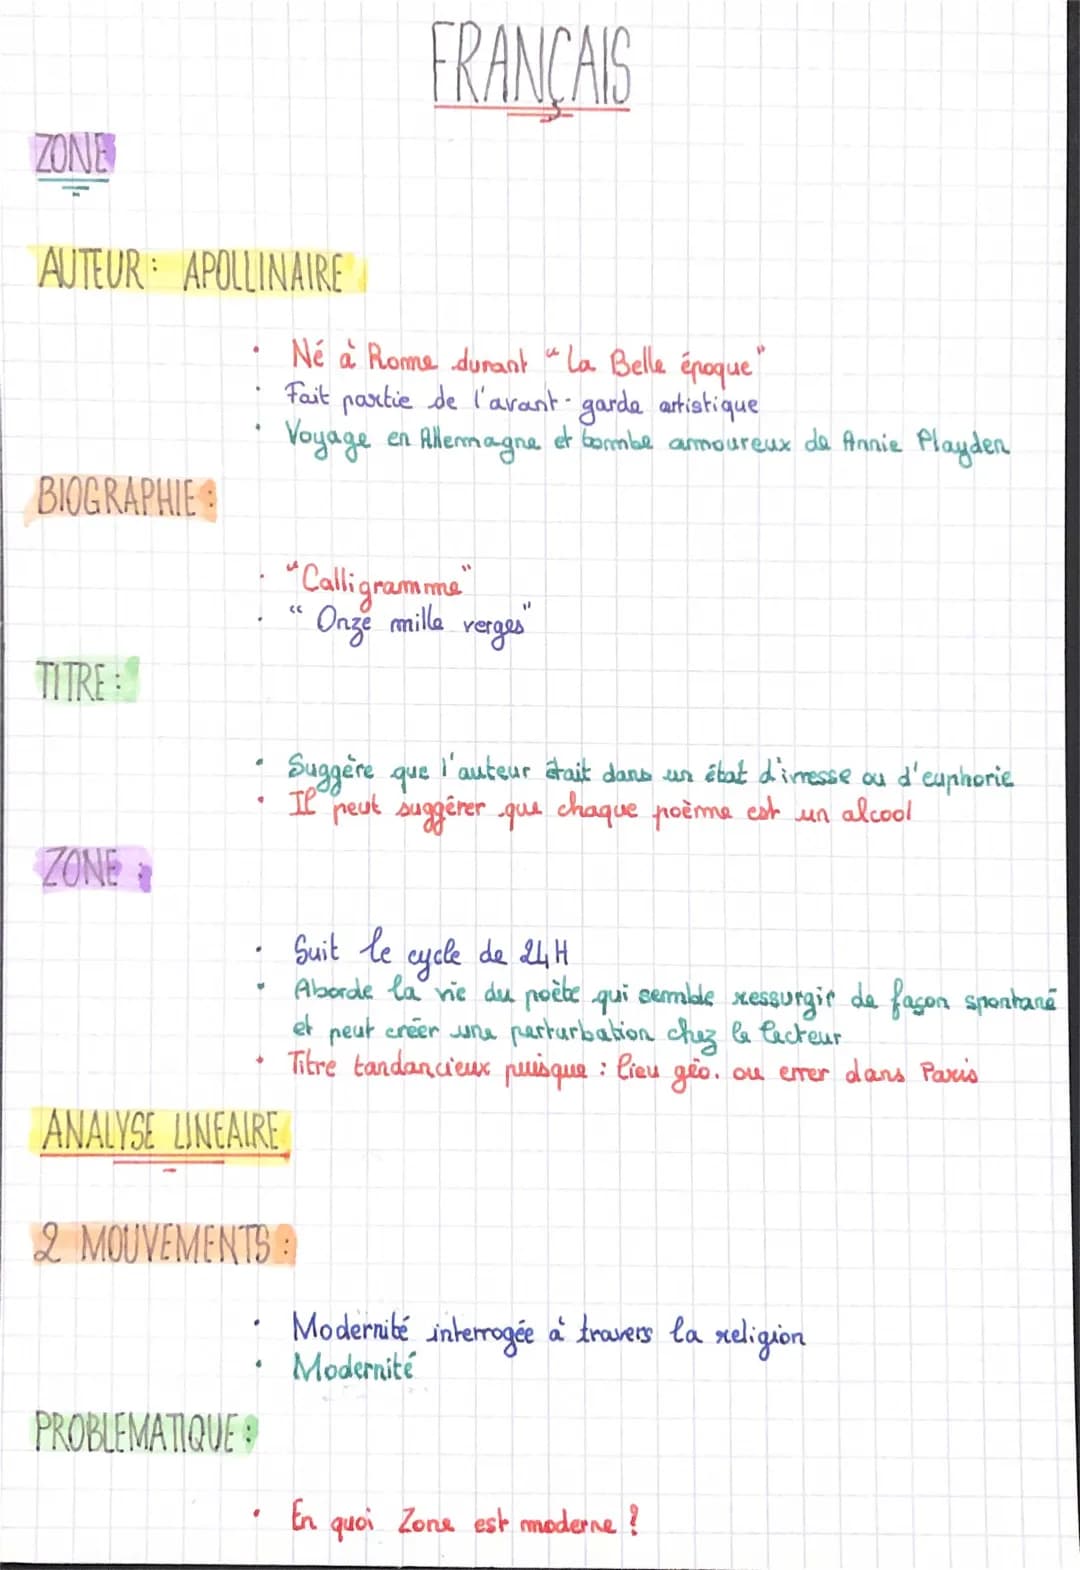 FRANÇAIS
ZONE
AUTEUR : APOLLINAIRE
• Né à Rome durant "La Belle époque"
• Fait partie de l'avant-garde artistique
• Voyage en Allemagne et bombe amoureux de Annie Playden
BIOGRAPHIE :
• "Calligramme"
• "Onze mille verges"
TITRE :
• Suggère que l'auteur était dans un état d'ivresse ou d'euphorie
• Il peut suggérer que chaque poème est un alcool
ZONE :
• Suit le cycle de 24H
• Aborde la vie du poète qui semble ressurgir de façon spontané
et peut créer une perturbation chez le lecteur
• Titre tandancieux puisque : lieu géo. ou errer dans Paris
ANALYSE LINEAIRE
2 MOUVEMENTS :
• Modernité interrogée à travers la religion
• Modernité
PROBLEMATIQUE :
• En quoi Zone est moderne ?